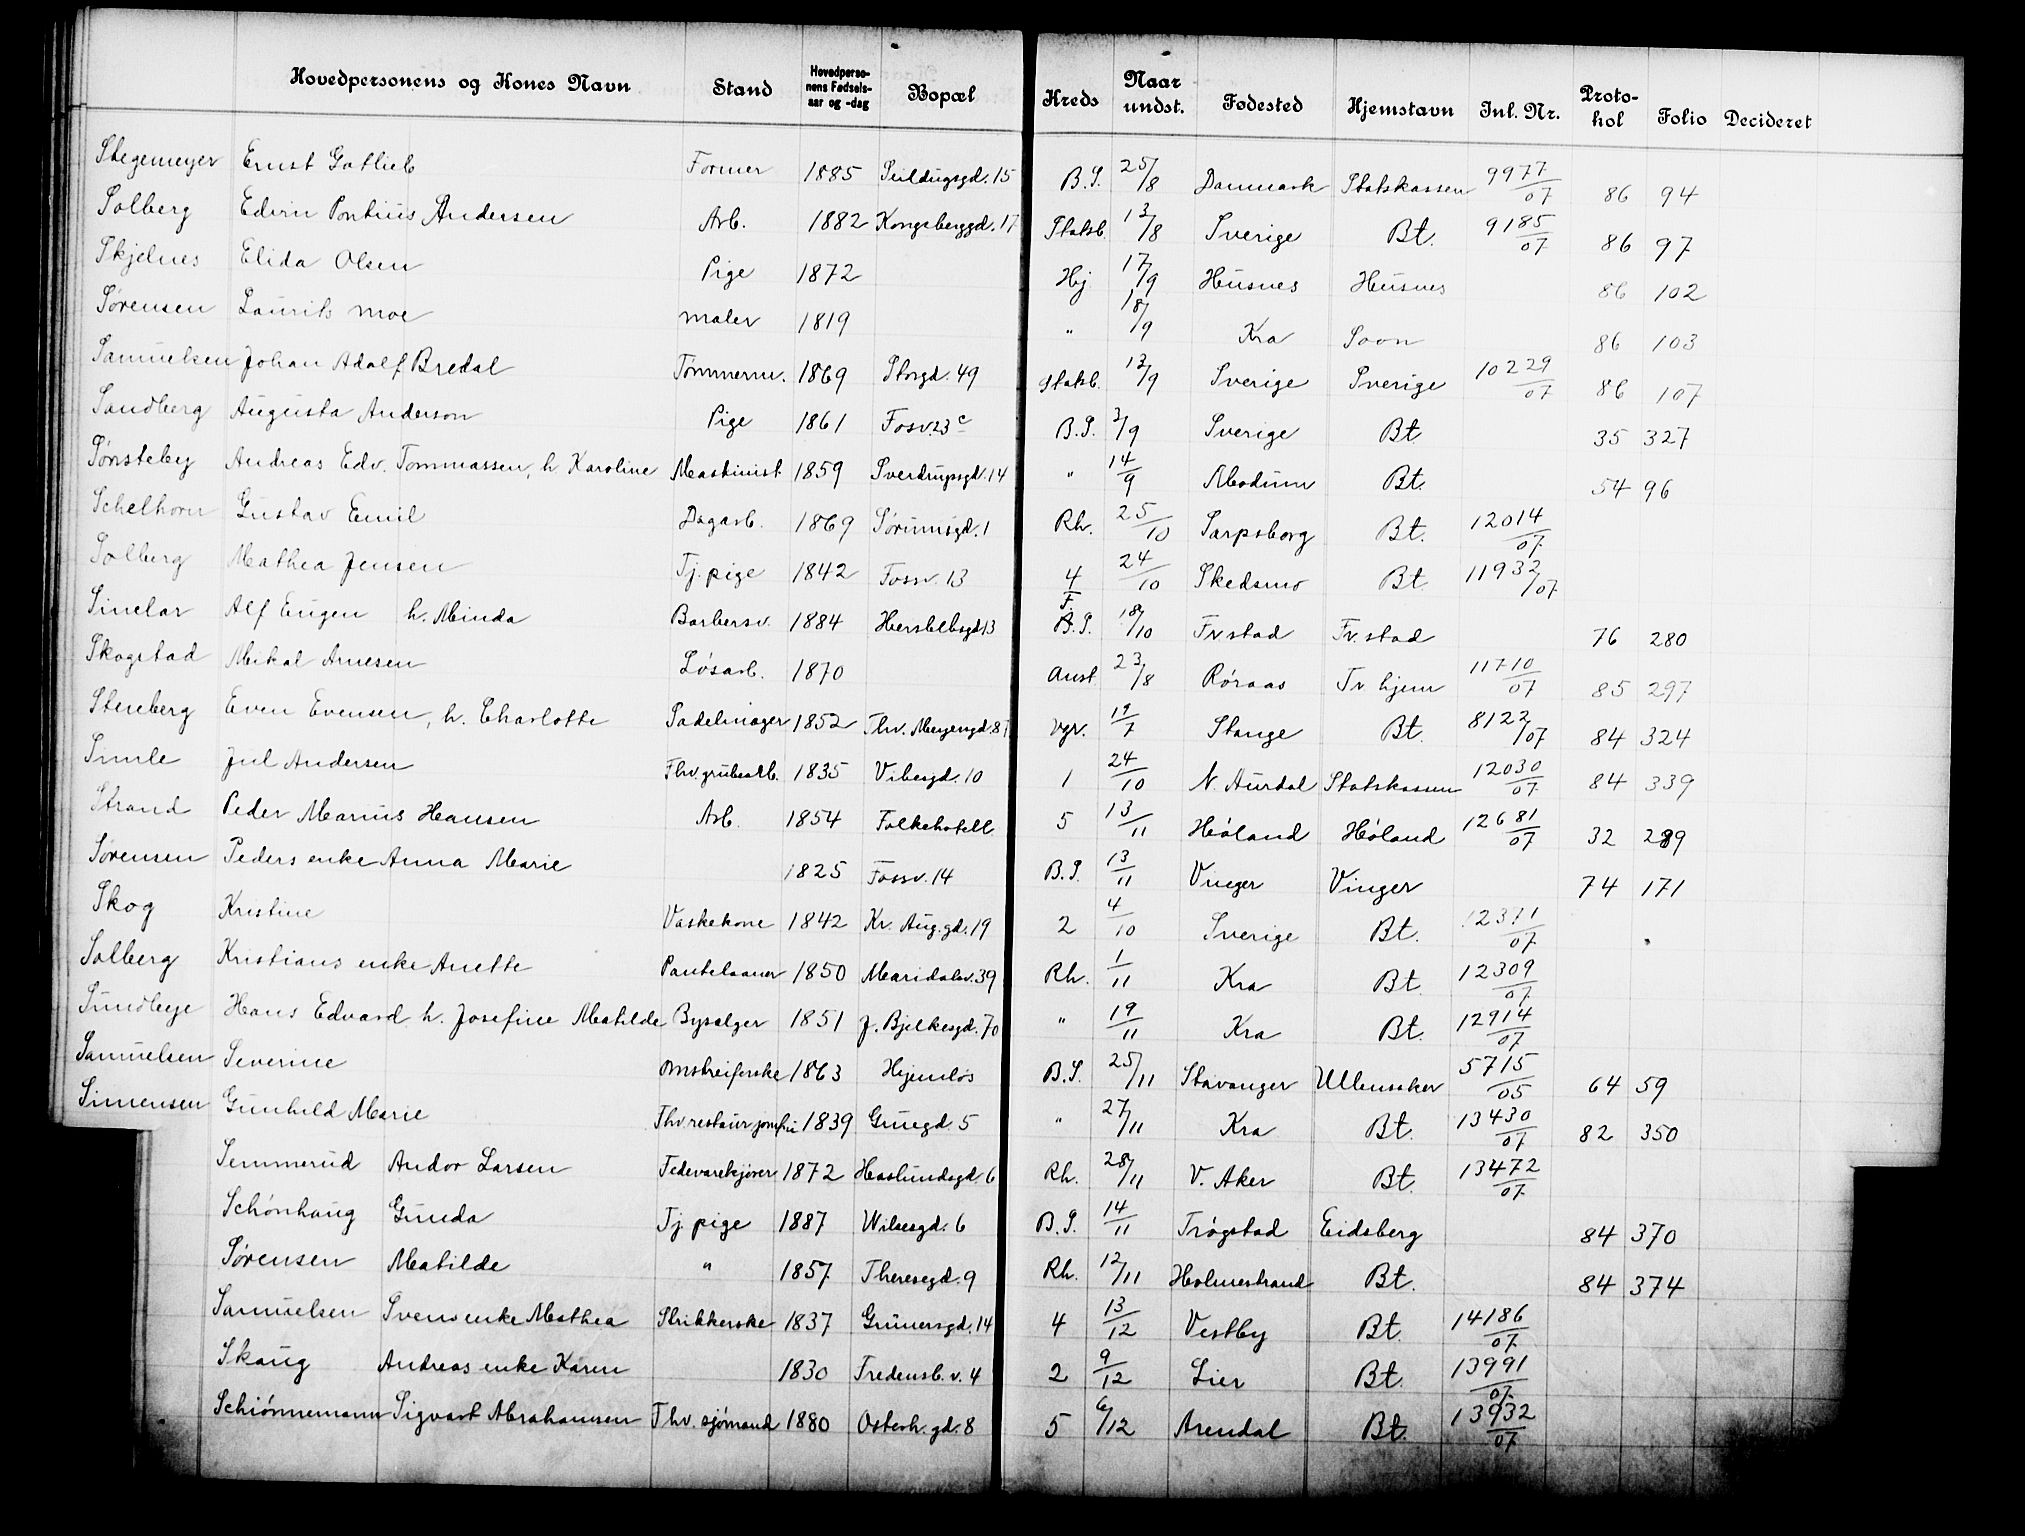 Hovedpersonens og Kones Navn Stand Hovedperso-nens Fødsels-aar og -dag Bopæl Kreds Naar undst. Fødested Hjemstavn Inl. Nr. Proto-kol Folio Decideret
Stegemeyer Ernst Gotlieb Former 1885 15 B.S. 25/8 Danmark Statskassen 9977/07 86 94
Solberg Edvin Pontius Andersen Arb. 1882 Kongsberggd. 17 Statsb. 13/8 Sverige Bt. 9185/07 86 97
Skjelnes Elida Olsen Pige 1872 Hj 17/9 Husnes Husnes 86 102
Sørensen Laurits Moe Maler 1819 " 18/9 Kra Soon 86 103
Samuelsen Johan Adolf Bredal Tømmerm. 1869 Storgd. 49 Statsb. 12/9 Sverige Sverige 10229/07 86 107
Sandberg Augusta Anderson Pige 1861 Fosv. 23 c B.S. 3/9 Sverige Bt 35 327
Sønsteby Andreas Edv. Tommassen, h. Karoline Maskinist 1859 Sverdrupsgd. 14 " 14/9 Modum Bt. 54 96
Schelhorn Gustav Emil Dagarb. 1869 Sørumsgd. 1 Rh. 25/10 Sarpsborg Bt. 12014/07
Solberg Mathea Jensen Tj. pige 1842 Fossv. 13 4/F. 24/10 Skedsmo Bt. 11932/07
Sinclar Alf Eugen h. Minda Barbersv. 1884 Herslebsgd 13 B.S. 18/10 Fr.stad Fr.stad 76 280
Skogstad Mikal Arnesen Løsarb. 1870 Anst. 23/8 Røraas Tr hjem 11710/07 85 297
Stenberg Even Evensen, h. Charlotte Sadelmager 1852 Thv. Meyersgd. 87 Vgr. 19/7 Stange Bt. 8122/07 84 324
Simle Jul Andersen Fhv. grubearb. 1835 Vibesgd. 10 1 24/10 N. Aurdal Statskassen 12030/07 84 339
Strand Peder Marius Hansen Arb. 1854 Folkehotell 5 13/11 Høland Høland 12681/07 32 289
Sørensen Peders enke Anna Marie 1825 Fossv. 14 B.S. 13/11 Vinger Vinger 74 171
Skog Kristine Vaskekone 1842 Kr. Aug. gd. 19 2 4/10 Sverige Bt. 12371/07
Solberg Kristians enke Anette Pantelaaner 1850 Maridalsv. 39 Rh. 1/11 Kra Bt. 12309/07
Sundbye Hans Edvard h. Josefine Matilde Bysælger 1851 J. Bjelkesgd. 70 " 19/11 Kra Bt. 12914/07
Samuelsen Severine Omstreiferske 1863 Hjemløs B.S. 25/11 Stavanger Ullensaker 5715/05 64 59
Simensen Gunhild Marie Fhv. restaur jomfru 1839 Gruegd. 5 " 27/11 Kra Bt. 13430/07 82 350
Semmerud Andor Larsen Fedevarekjører 1872 Haslundsgd. 6 Rh. 28/11 V. Aker Bt. 13472/07
Schønhaug Gunda Tj. pige 1887 Wilsesgd. 6 B.S. 14/11 Trøgstad Eidsberg 84 370
Sørensen Matilde " 1857 Theresegd. 9 Rh. 12/11 Holmestrand Bt. 84 374
Samuelsen Svens enke Mathea Strikkerske 1837 Grünersgd. 14 4 13/12 Vestby Bt. 14186/07
Skaug Andreas enke Karen 1830 Fredensb. v. 4 2 9/12 Lier Bt. 13991/07
Schiønnemann Sigvart Abrahamsen Fhv. sjømand 1880 Osterh. gd. 8 5 6/12 Arendal Bt. 13932/07